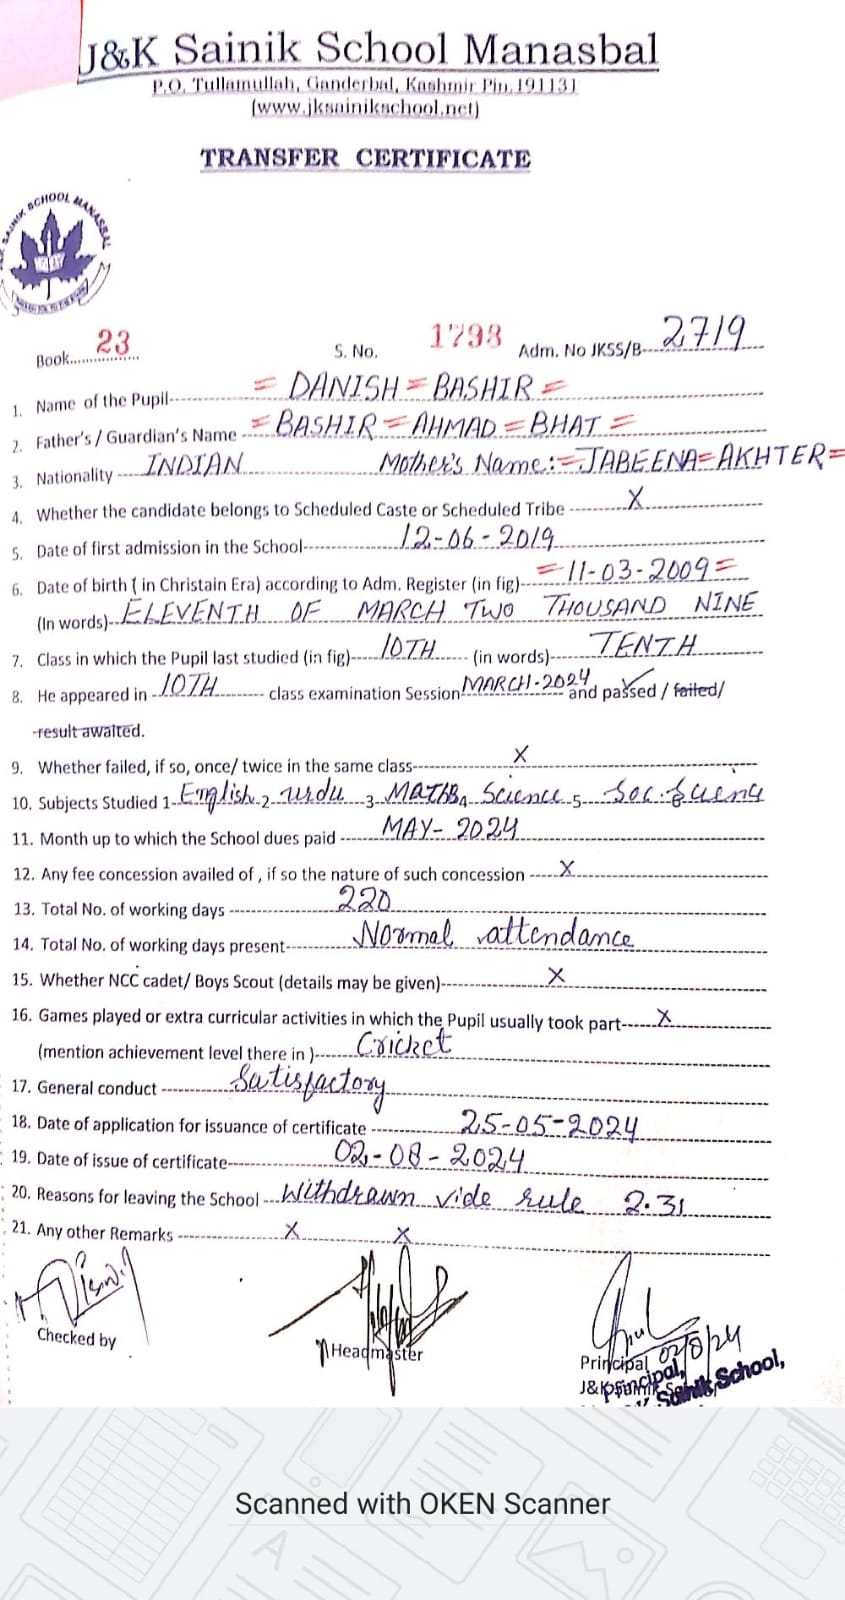 J&K Sainik School Manasbal
P.O. Tullamullah, Ganderbal, Kashmir Pin. 191131
(www.jksainikschool.net)
TRANSFER CERTIFICATE
SAINIK SCHOOL MANASBAL
Book...... 23 S. No. 1793 Adm. No JKSS/B--- 2719
1. Name of the Pupil--- = DANISH = BASHIR =
2. Father's / Guardian's Name --- = BASHIR = AHMAD = BHAT =
3. Nationality --- INDIAN Mother's Name:- = JABEENA = AKHTER =
4. Whether the candidate belongs to Scheduled Caste or Scheduled Tribe --- X
5. Date of first admission in the School--- 12-06-2019
6. Date of birth ( in Christain Era) according to Adm. Register (in fig)--- = 11-03-2009 =
(In words)-- ELEVENTH OF MARCH TWO THOUSAND NINE
7. Class in which the Pupil last studied (in fig)--- 10TH --- (in words)--- TENTH
8. He appeared in - 10TH --- class examination Session MARCH-2024 and passed / failed/
result awaited.
9. Whether failed, if so, once/ twice in the same class--- X
10. Subjects Studied 1- English 2 Urdu 3 MATHS 4 Science 5 Soc. Science
11. Month up to which the School dues paid --- MAY-2024
12. Any fee concession availed of , if so the nature of such concession --- X
13. Total No. of working days --- 220
14. Total No. of working days present--- Normal attendance
15. Whether NCC cadet/ Boys Scout (details may be given)--- X
16. Games played or extra curricular activities in which the Pupil usually took part--- X
(mention achievement level there in )--- Cricket
17. General conduct --- Satisfactory
18. Date of application for issuance of certificate --- 25-05-2024
19. Date of issue of certificate--- 02-08-2024
20. Reasons for leaving the School --- Withdrawn vide rule 2.31
21. Any other Remarks --- X X
Checked by Headmaster Principal 02/8/24
J&K Sainik School,
Principal,
Sainik School,
Scanned with OKEN Scanner